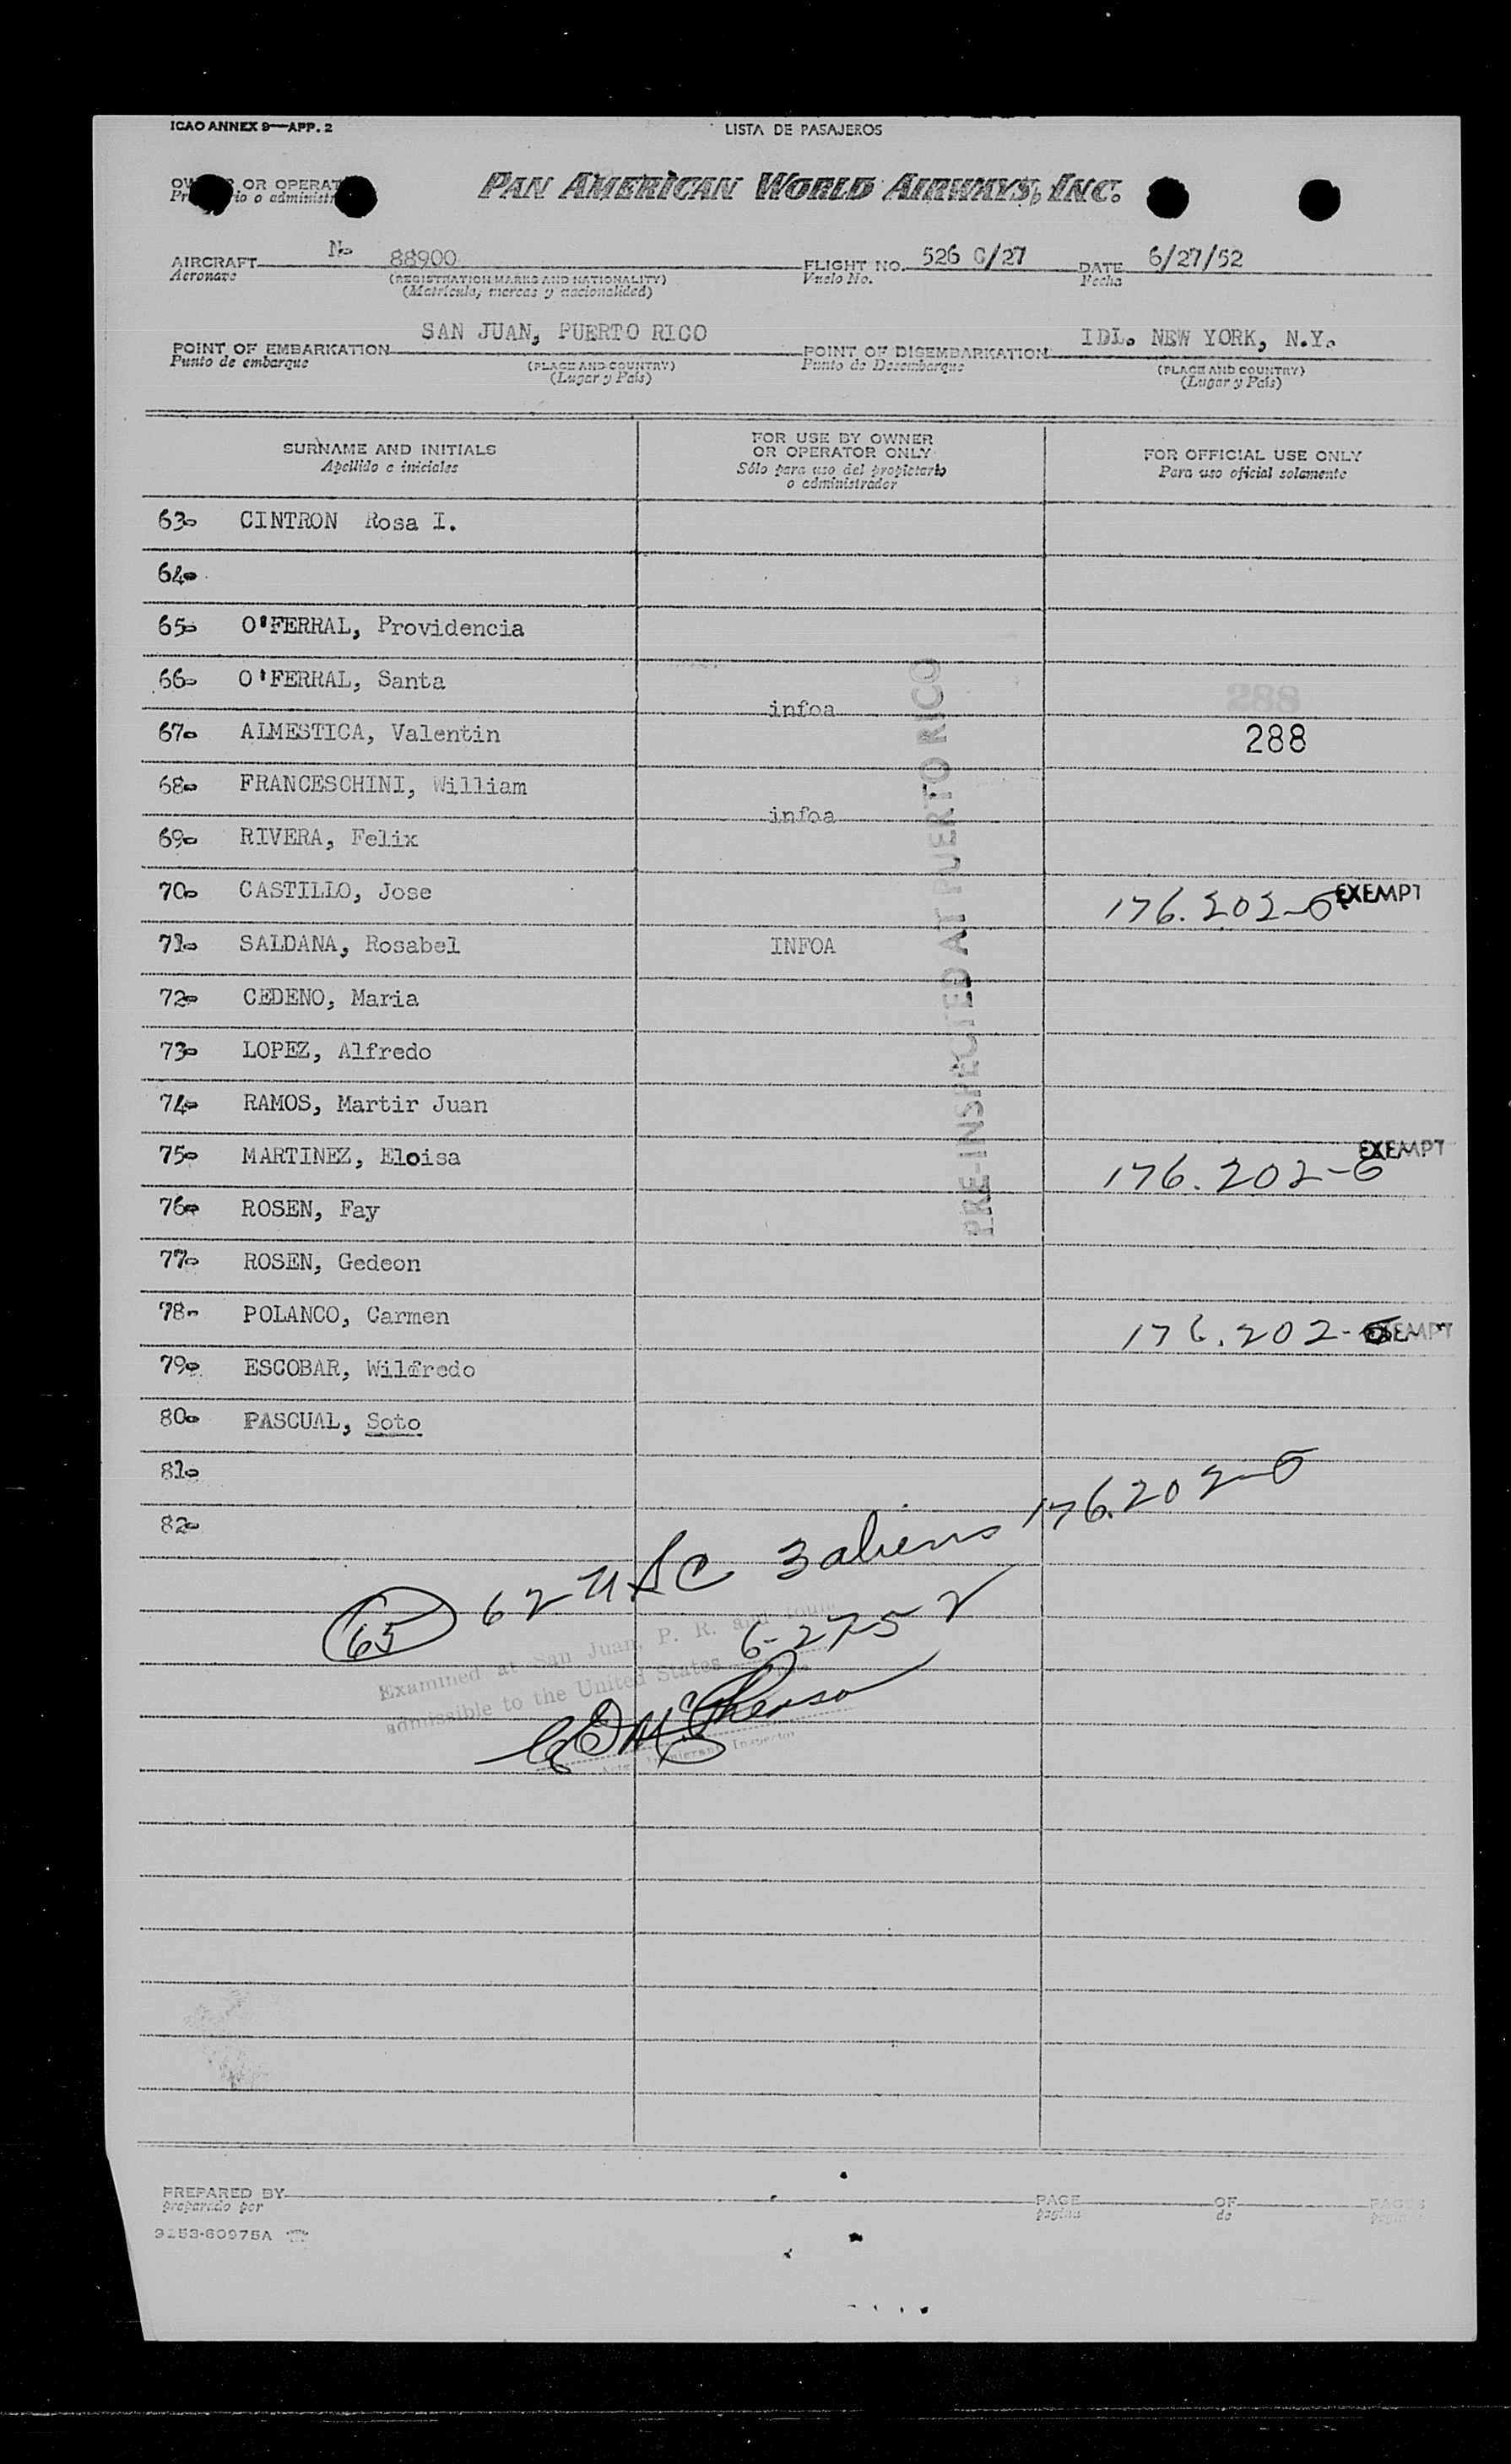 ICAO ANNEX 9—APP. 2
LISTA DE PASAJEROS
OR OPERAT
io o administr
PAN AMERICAN WORLD AIRWAYS, INC.
AIRCRAFT No 88900 FLIGHT NO. 526 C/27 DATE 6/27/52
Aeronave (REGISTRATION MARKS AND NATIONALITY) Vuelo No. Fecha
(Matrícula, marcas y nacionalidad)
POINT OF EMBARKATION SAN JUAN, PUERTO RICO POINT OF DISEMBARKATION IDL. NEW YORK, N.Y.
Punto de embarque (PLACE AND COUNTRY) Punto de Desembarque (PLACE AND COUNTRY)
(Lugar y País) (Lugar y País)
SURNAME AND INITIALS FOR USE BY OWNER OR OPERATOR ONLY FOR OFFICIAL USE ONLY
Apellido e iniciales Sólo para uso del propietario o administrador Para uso oficial solamente
63. CINTRON Rosa I.
64.
65. O'FERRAL, Providencia
66. O'FERRAL, Santa 288
infoa
67. ALMESTICA, Valentin 288
68. FRANCESCHINI, William
infoa
69. RIVERA, Felix
70. CASTILLO, Jose 176.202-6 EXEMPT
71. SALDANA, Rosabel INFOA
72. CEDENO, Maria
73. LOPEZ, Alfredo
74. RAMOS, Martir Juan
75. MARTINEZ, Eloisa 176.202-6 EXEMPT
76. ROSEN, Fay
77. ROSEN, Gedeon
78. POLANCO, Carmen 176.202-6 EXEMPT
79. ESCOBAR, Wilfredo
80. PASCUAL, Soto
81.
82.
PRE-INSPECTED AT PUERTO RICO
65 62 USC 3 aliens 176.202-6
6-27-52
Examined at San Juan, P. R. and found
admissible to the United States
Immigrant Inspector
PREPARED BY PAGE OF PAGES
preparado por pagina de
3153-60975A